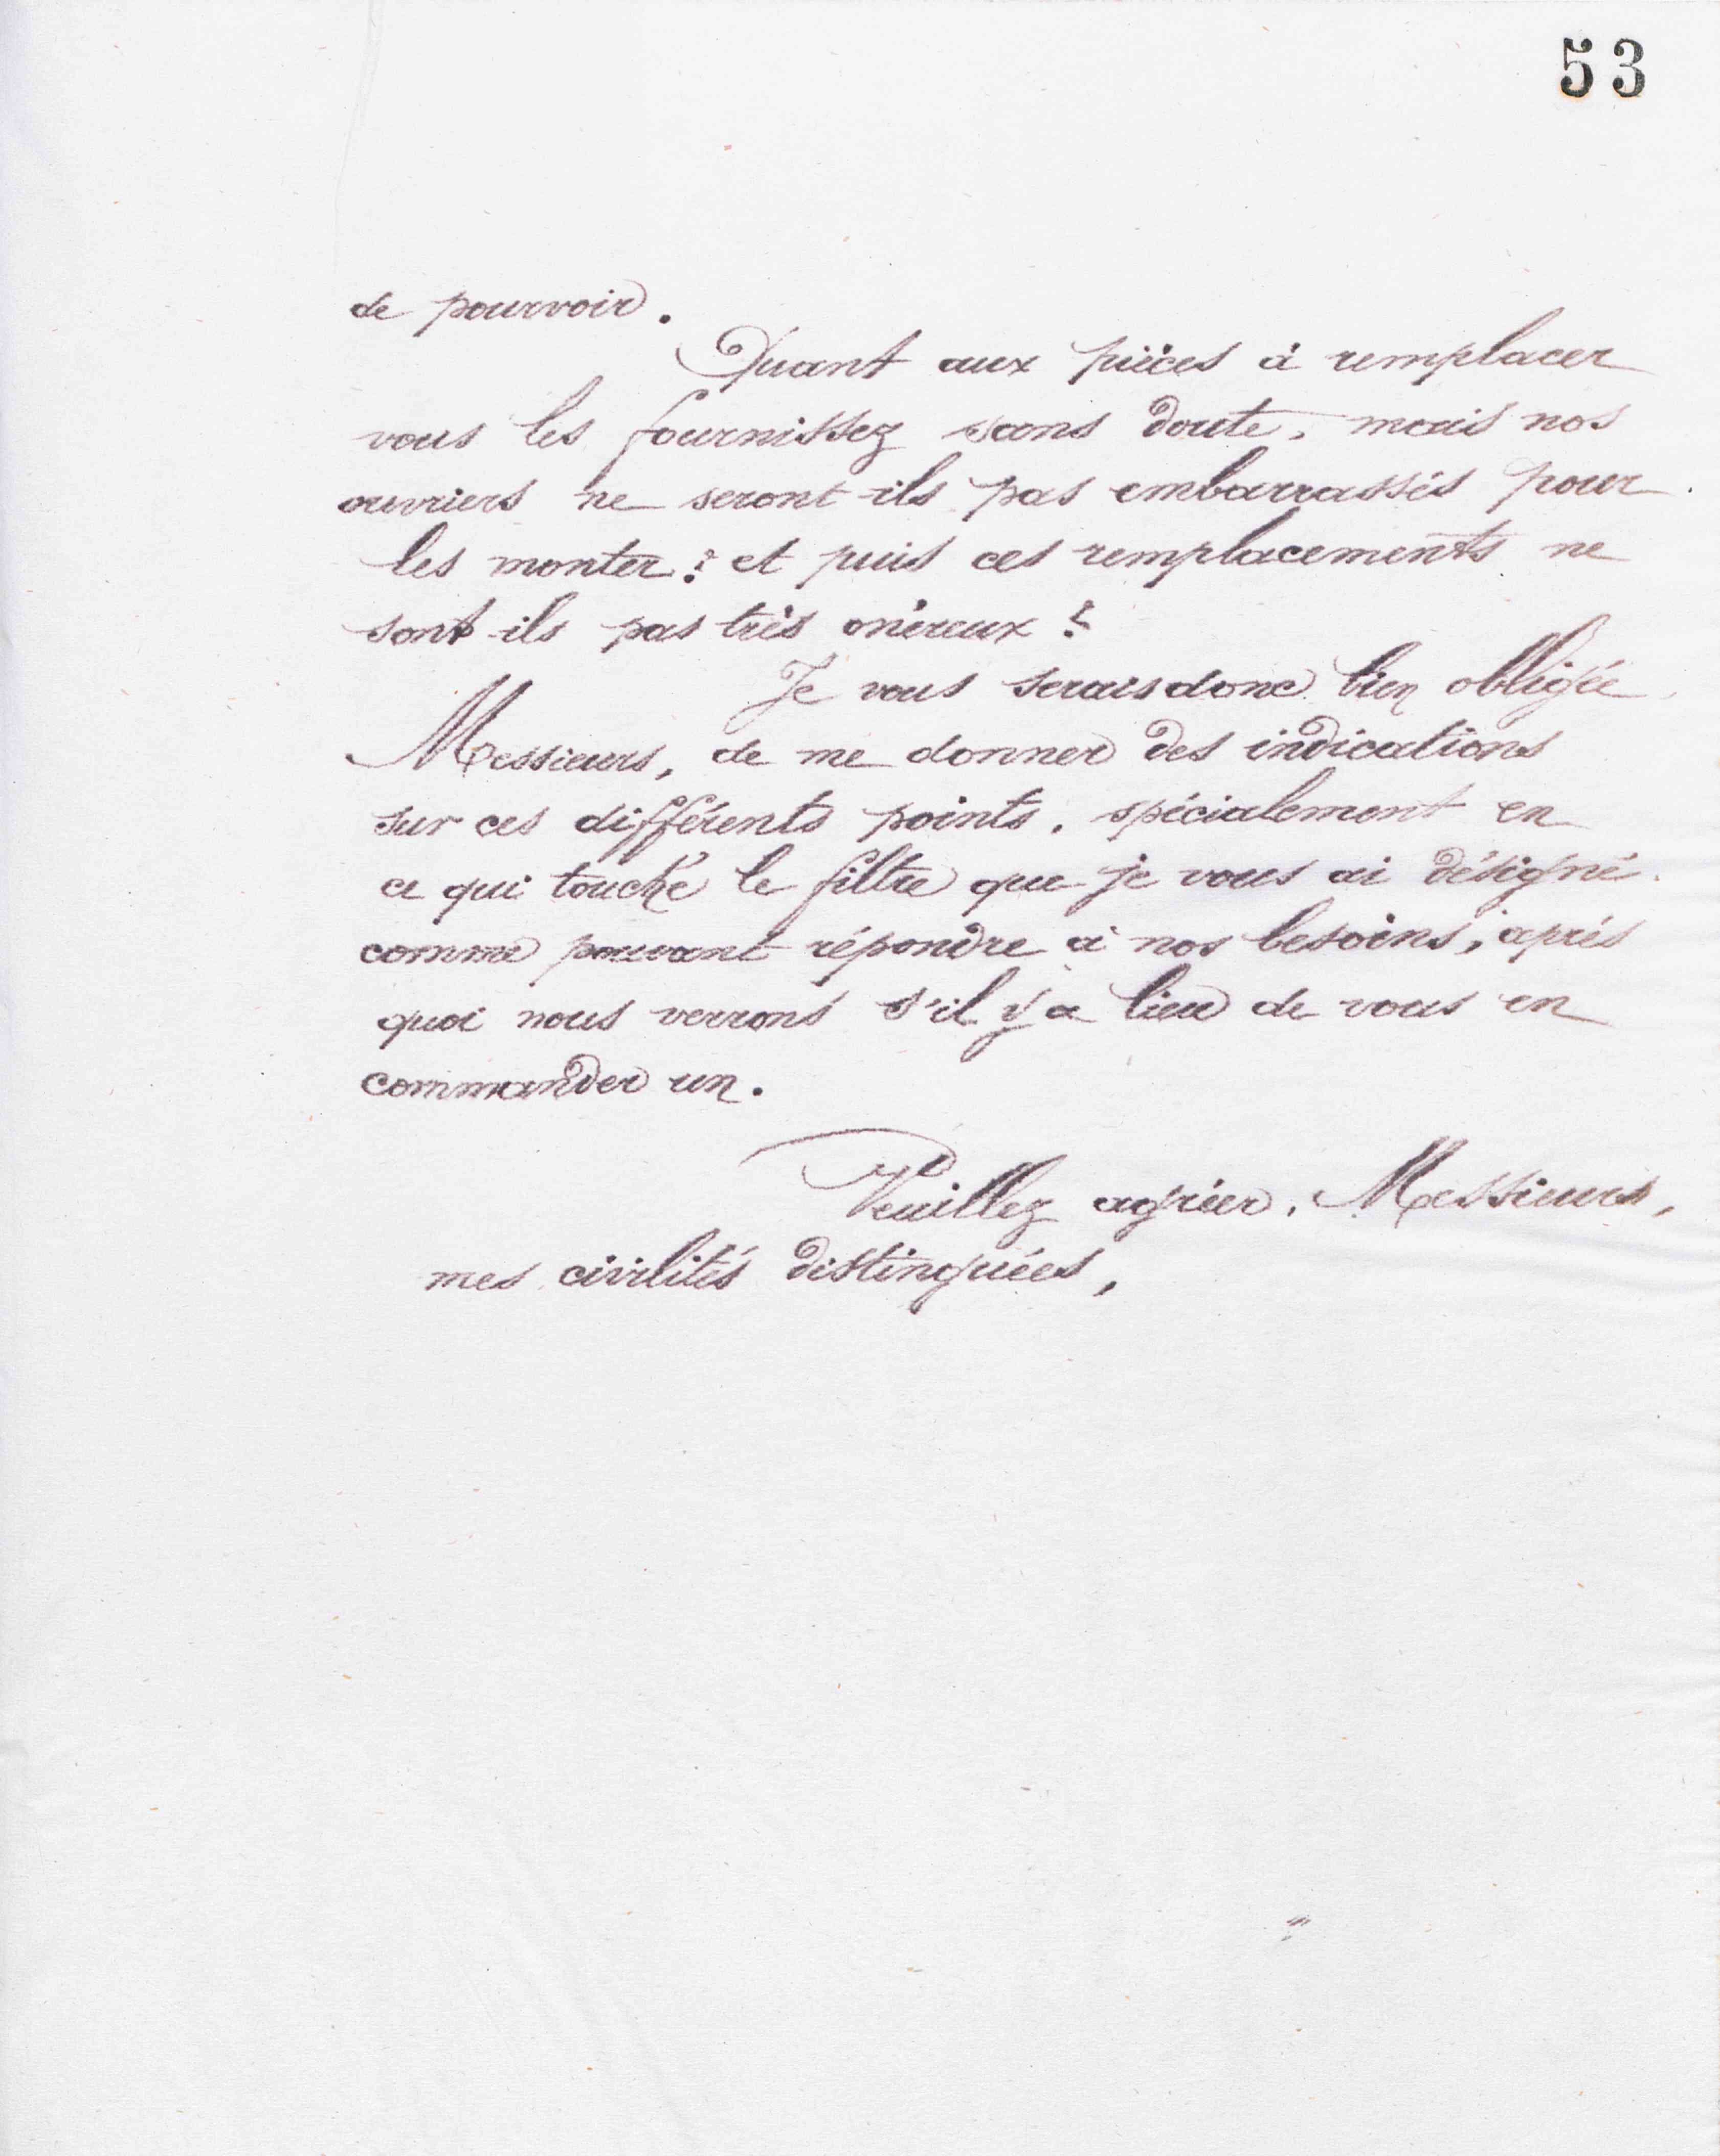 53
de pourvoir.
Quant aux pièces à remplacer
vous les fournissez sans doute, mais nos
ouvriers ne seront-ils pas embarrassés pour
les monter ? et puis ces remplacements ne
sont-ils pas très onéreux ?
Je vous serais donc bien obligée
Messieurs, de me donner des indications
sur ces différents points, spécialement en
ce qui touche le filtre que je vous ai désigné
comme pouvant répondre à nos besoins, après
quoi nous verrons s'il y a lieu de vous en
commander un.
Veuillez agréer, Messieurs,
mes civilités distinguées,